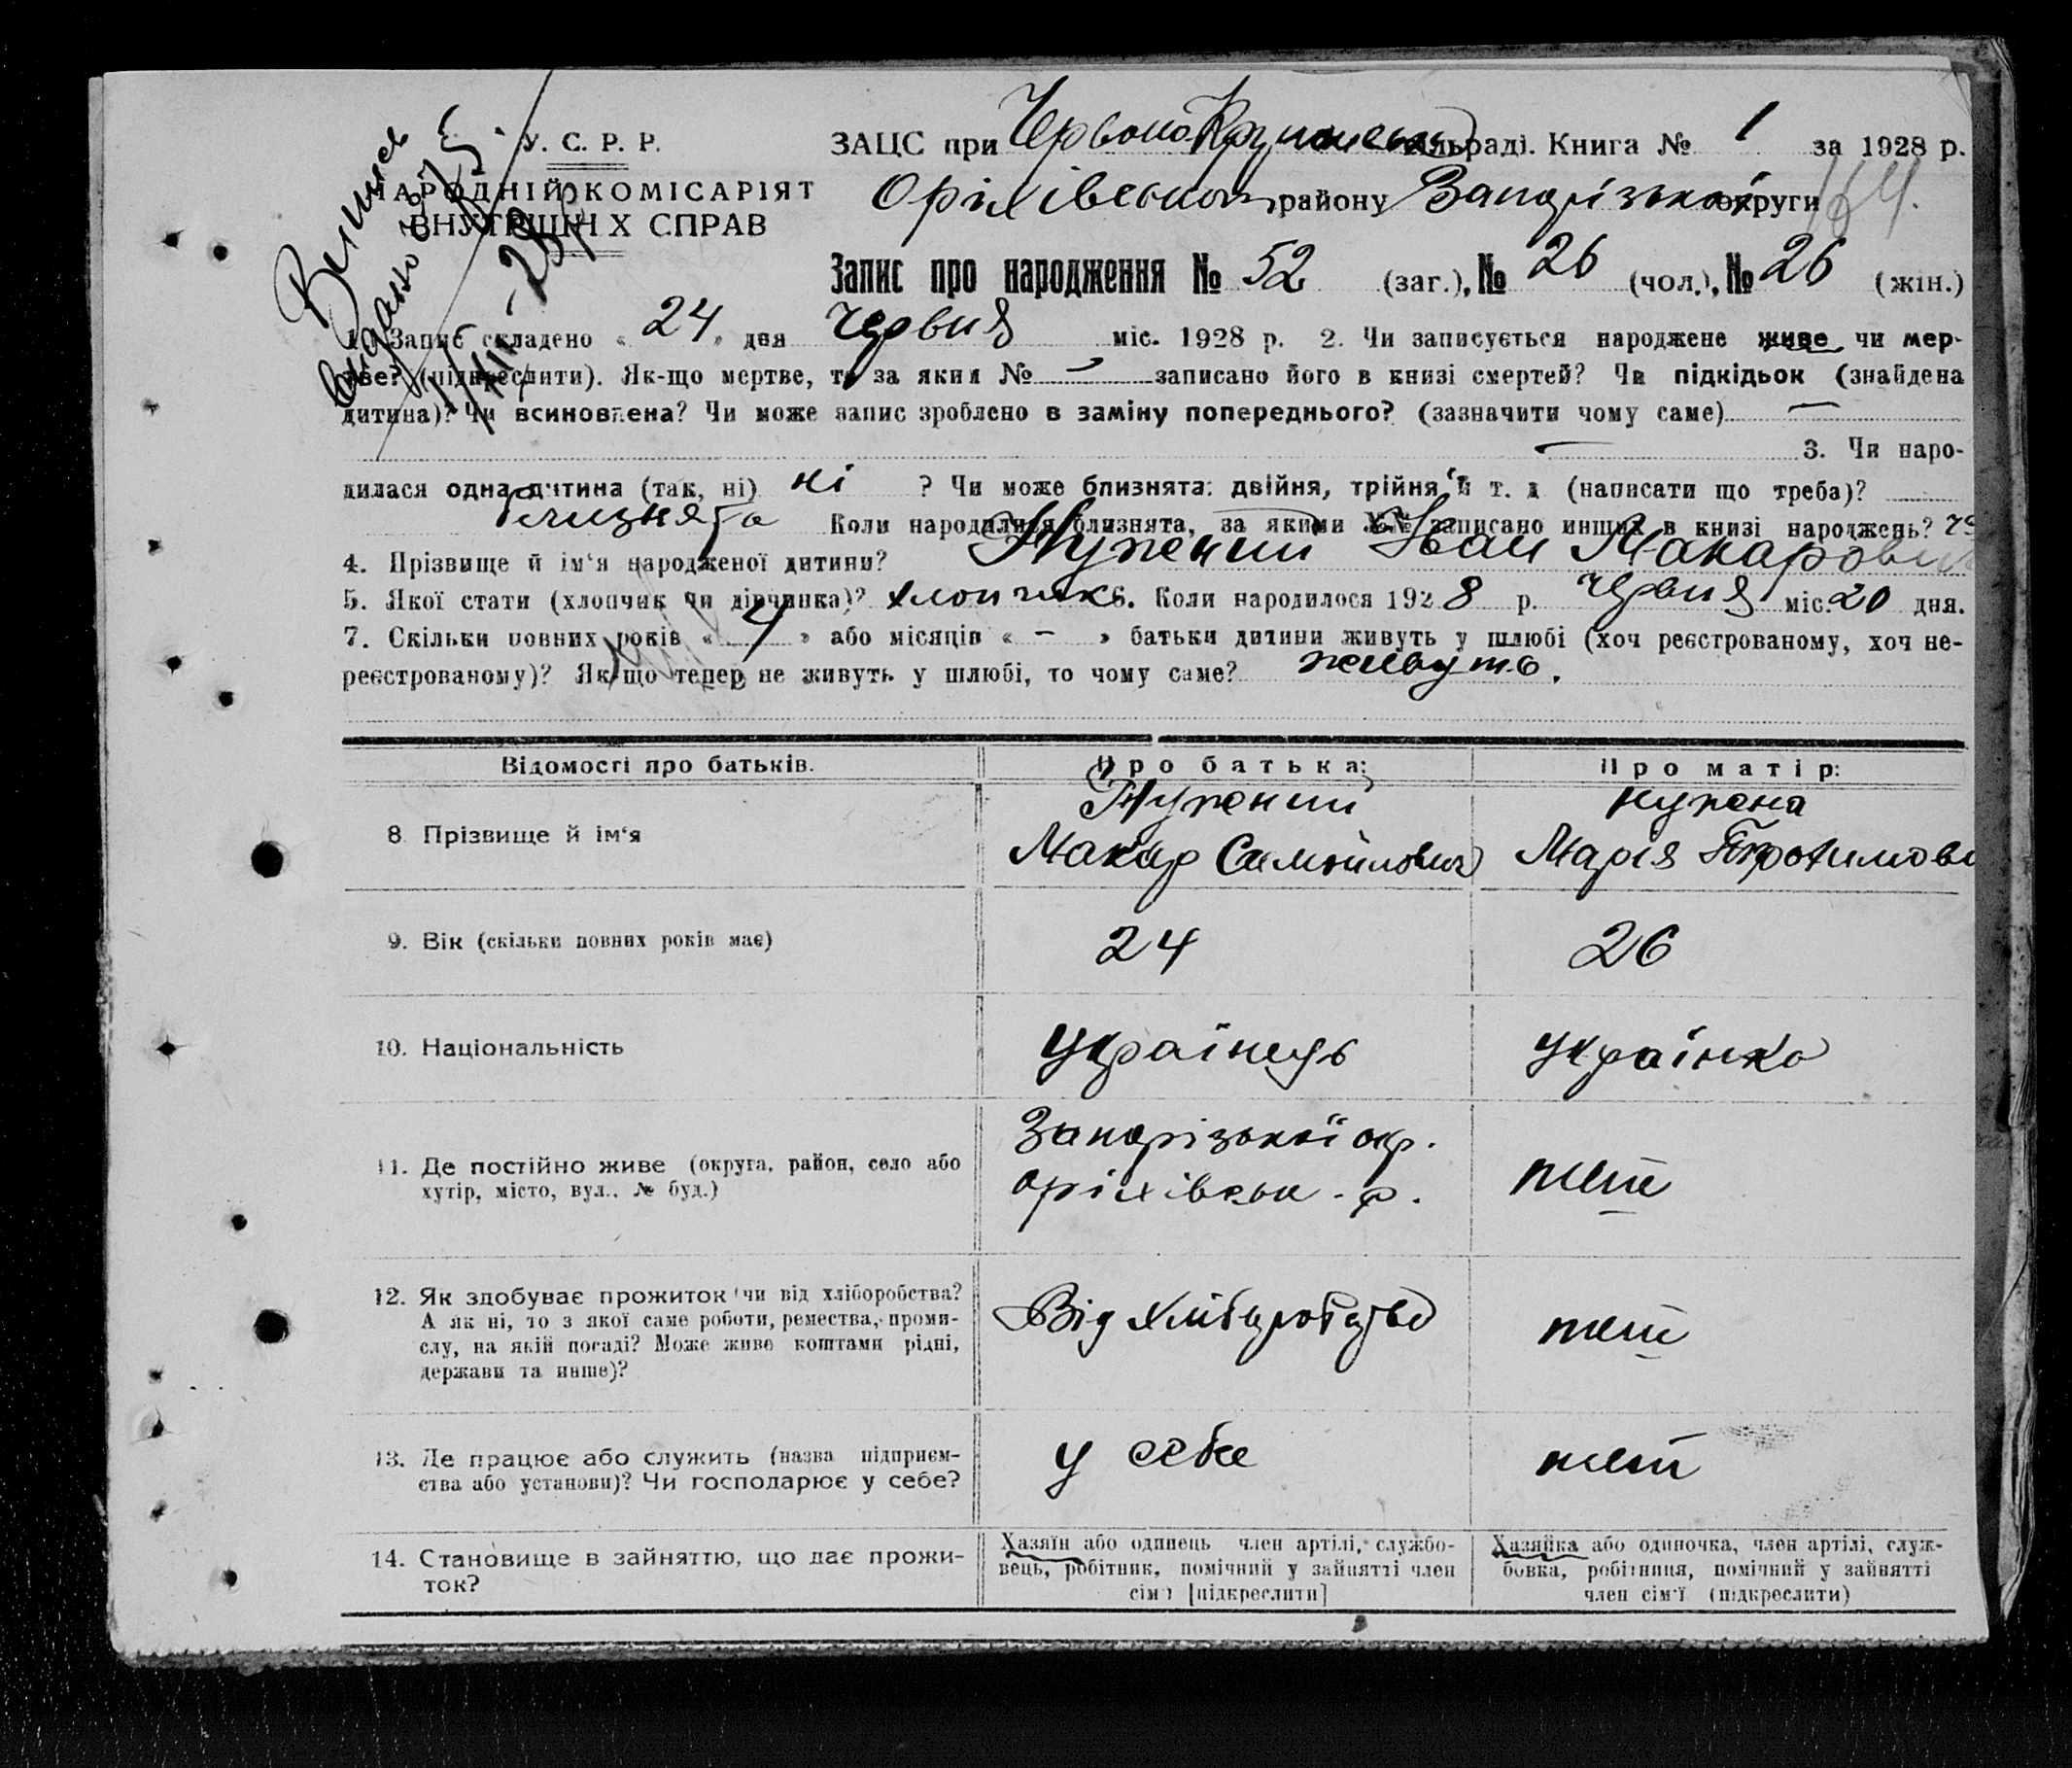 У. С. Р. Р.
НАРОДНІЙ КОМІСАРІЯТ
ВНУТРІШНІХ СПРАВ
ЗАЦС при сільраді. Книга № 1 за 1928 р.
Оріхівського району Запорізької округи 164.
Запис про народження № 52 (заг.), № 26 (чол.), № 26 (жін.)
1. Запис складено « 24 » дня червня міс. 1928 р. 2. Чи записується народжене живе чи мер-
тве? (підкреслити). Як-що мертве, то за яким № – записано його в книзі смертей? Чи підкідьок (знайдена
дитина)? Чи всиновлена? Чи може запис зроблено в заміну попереднього? (зазначити чому саме) –
– 3. Чи наро-
дилася одна дитина (так, ні) ні ? Чи може близнята: двійня, трійня й т. д (написати що треба)?
близнята Коли народилися близнята, за якими №№ записано инших в книзі народжень?
4. Прізвище й ім‘я народженої дитини? Іван Макарович
5. Якої стати (хлопчик чи дівчинка)? хлопчик 6. Коли народилося 1928 р. червня міс. 20 дня.
7. Скільки повних років « 4 » або місяців « – » батьки дитини живуть у шлюбі (хоч реєстрованому, хоч не-
реєстрованому)? Як-що тепер не живуть у шлюбі, то чому саме? живуть.
Відомості про батьків. Про батька: Про матір:
8 Прізвище й ім‘я
Макар Самойлович Марія
9. Вік (скільки повних років має) 24 26
10. Національність Українець Українка
11. Де постійно живе (округа, район, село або
хутір, місто, вул., № буд.)
Запорізької окр.
Оріхівськ. р.
12. Як здобуває прожиток чи від хліборобства?
А як ні, то з якої саме роботи, ремества, проми-
слу, на якій посаді? Може живе коштами рідні,
держави та инше)?
Від хліборобства
13. Де працює або служить (назва підприєм-
ства або установи)? Чи господарює у себе?
у себе
14. Становище в зайняттю, що дає прожи-
ток?
Хазяїн або одинець член артілі, службо-
вець, робітник, помічний у зайнятті член
сім'ї [підкреслити]
Хазяйка або одиночка, член артілі, служ-
бовка, робітниця, помічний у зайнятті
член сім'ї (підкреслити)